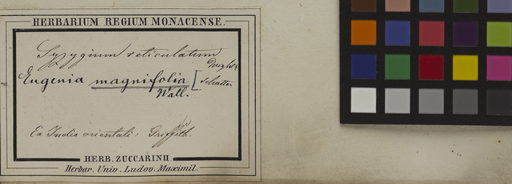 HERBARIUM REGIUM MONACENSE.
Syzygium reticulatum
Eugenia magnifolia
Wall.
Ex India orientali: Griffith.
HERB. ZUCCARINII
Herbar. Univ. Ludov. Maximil.